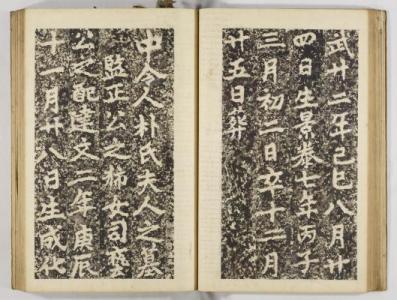 武廿二年己巳八月廿
四日生景泰七年丙子
三月初二日卒十二月
廿五日葬
中令人朴氏夫人之墓
監正公之女司藝
公之配建文二年庚辰
十一月廿八日生成化